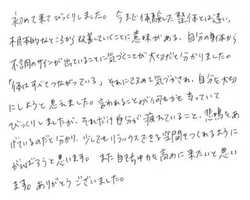 初めて来てびっくりしました。今まで体験した整体とは違い、
根本的なところから改善していくことに意味がある、自分の身体から
不調のサインが出ていることに気づくことが大切だと分かりました。
「体はすべてつながっている」それに改めて気づかされ、自分を大切
にしようと思えました。言われることが何もかも当っていて
びっくりしましたが、それだけ自分が疲れていること、悲鳴をあ
げているのだと分かり、少しでもリラックスできる空間をつくれるように
がんばろうと思います。また自己治癒力を高めに来たいと思い
ます。ありがとうございました。